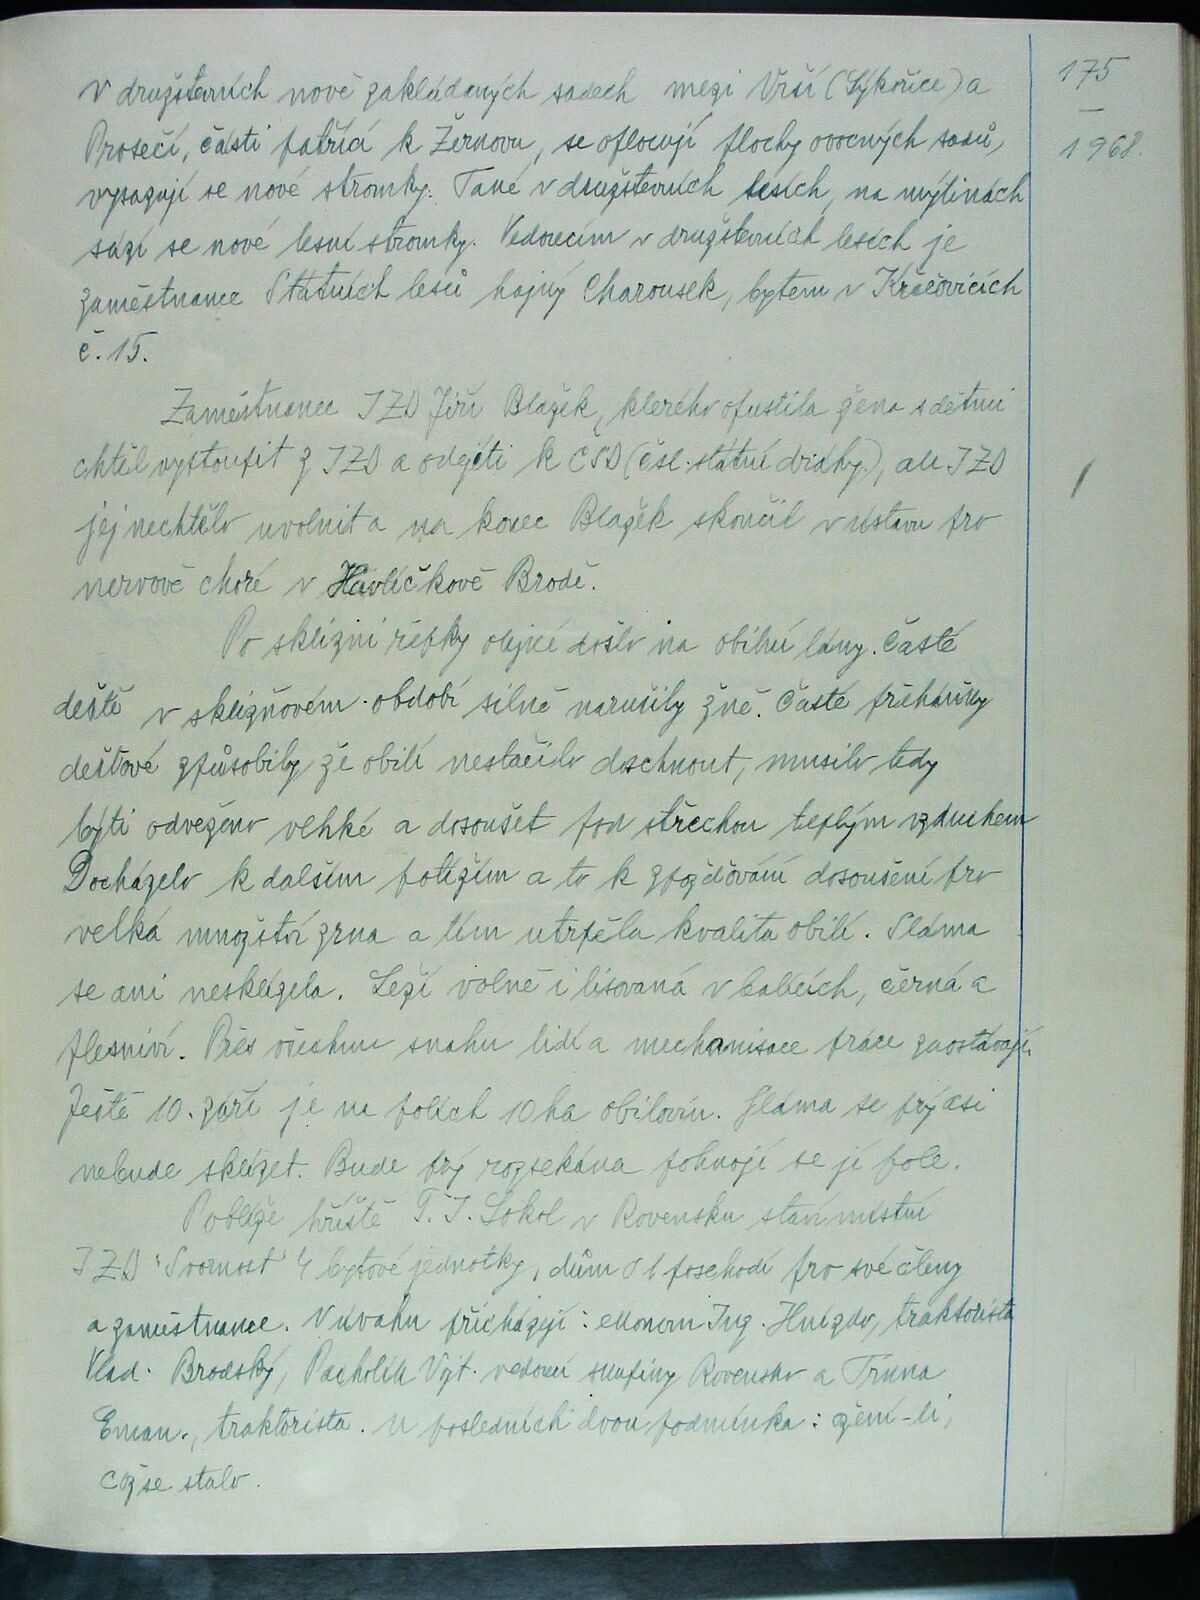 175
—
1968.
v družstevních nově zakládaných sadech mezi Vrší (Sýkořice) a
Prosečí, části patřící k Žernovu, se oplocují plochy ovocných sadů,
vysazují se nové stromky. Také v družstevních lesích, na mýtinách
sází se nové lesní stromky. Vedoucím v družstevních lesích je
zaměstnanec Státních lesů hajný Charousek, bytem v Křečovicích
č. 15.
Zaměstnanec JZD Jiří Blažek, kterého opustila žena s dětmi
chtěl vystoupit z JZD a odejíti k ČSD (čsl. státní dráhy), ale JZD
jej nechtělo uvolnit a na konec Blažek skončil v ústavu pro
nervově choré v Havlíčkově Brodě.
Po sklizni řepky olejné došlo na obilní lány. Časté
deště v sklizňovém období silně narušily žně. Časté přeháňky
dešťové způsobily že obilí nestačilo doschnout, musilo tedy
býti odvezeno vlhké a dosoušet pod střechou teplým vzduchem
Docházelo k dalším potížím a to k zpožďování dosoušení pro
velká množství zrna a tím utrpěla kvalita obilí. Sláma
se ani nesklízela. Leží volně i lisovaná v balících, černá a
plesniví. Přes všechnu snahu lidí a mechanisace práce zaostávají.
Ještě 10. září je na polích 10 ha obilovin. Sláma se prý asi
nebude sklízet. Bude prý rozsekána pohnojí se jí pole.
Poblíže hřiště T. J. Sokol v Rovensku staví místní
JZD "Svornost" 4 bytové jednotky, dům o 1 poschodí pro své členy
a zaměstnance. V úvahu přicházejí: ekonom Ing. Hnízdo, traktorista
Vlad. Brodský, Pacholík Vít. vedoucí skupiny Rovensko a Trnna
Eman., traktorista. U posledních dvou podmínka: ožení-li,
což se stalo.